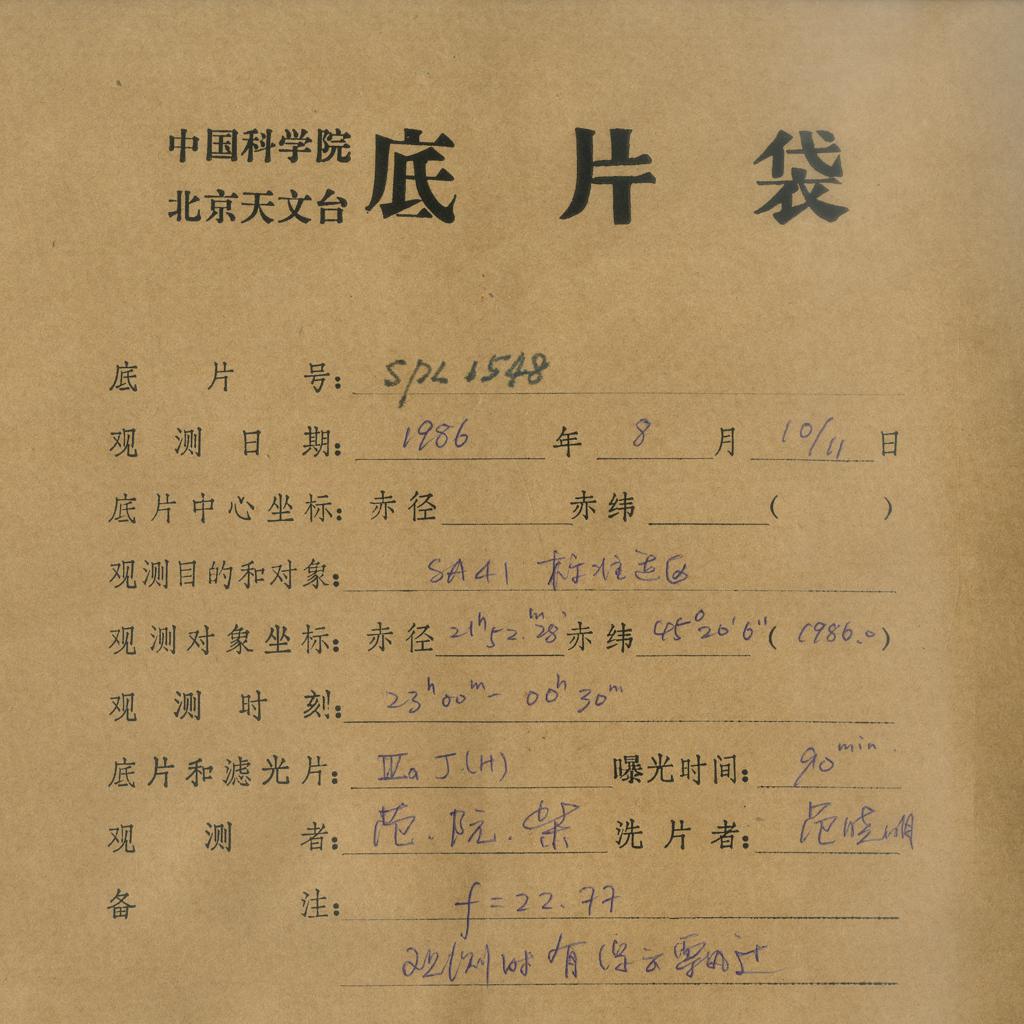 中国科学院
北京天文台
底片袋
底片号: SPL 1548
观测日期: 1986 年 8 月 10/11 日
底片中心坐标: 赤径 赤纬 ( )
观测目的和对象: SA41 标准选区
观测对象坐标: 赤径 21h52.m28 赤纬 45°20'6" (1986.0)
观测时刻: 23h00m - 00h30m
底片和滤光片: IIIa J(H) 曝光时间: 90min
观测者: 范.阮. 洗片者: 范晓明
备注: f=22.77
观测时有 云飘过